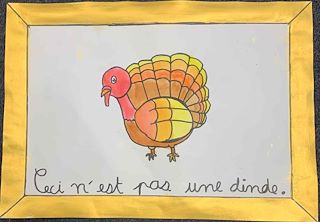 Ceci n'est pas une dinde.